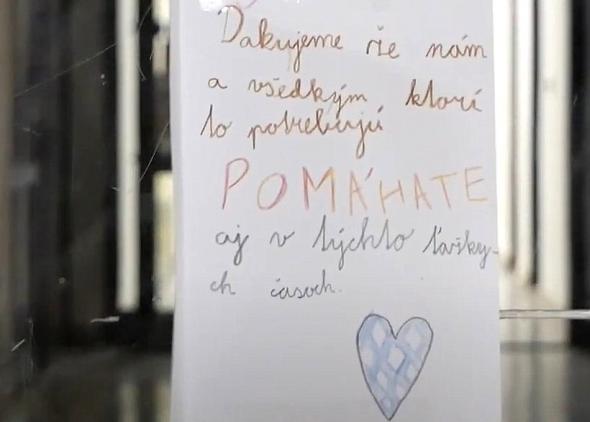 Dakujeme že nám
a všedkým ktorí
to potrebujú
POMÁHATE
aj v týchto ťažky-
ch časoch.